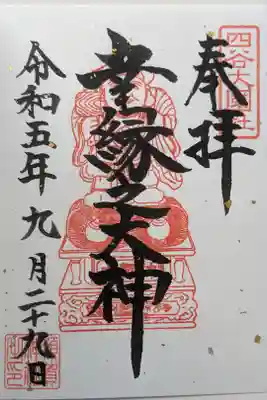 四谷大國社
奉拝
幸縁之大神
令和五年九月二十九日